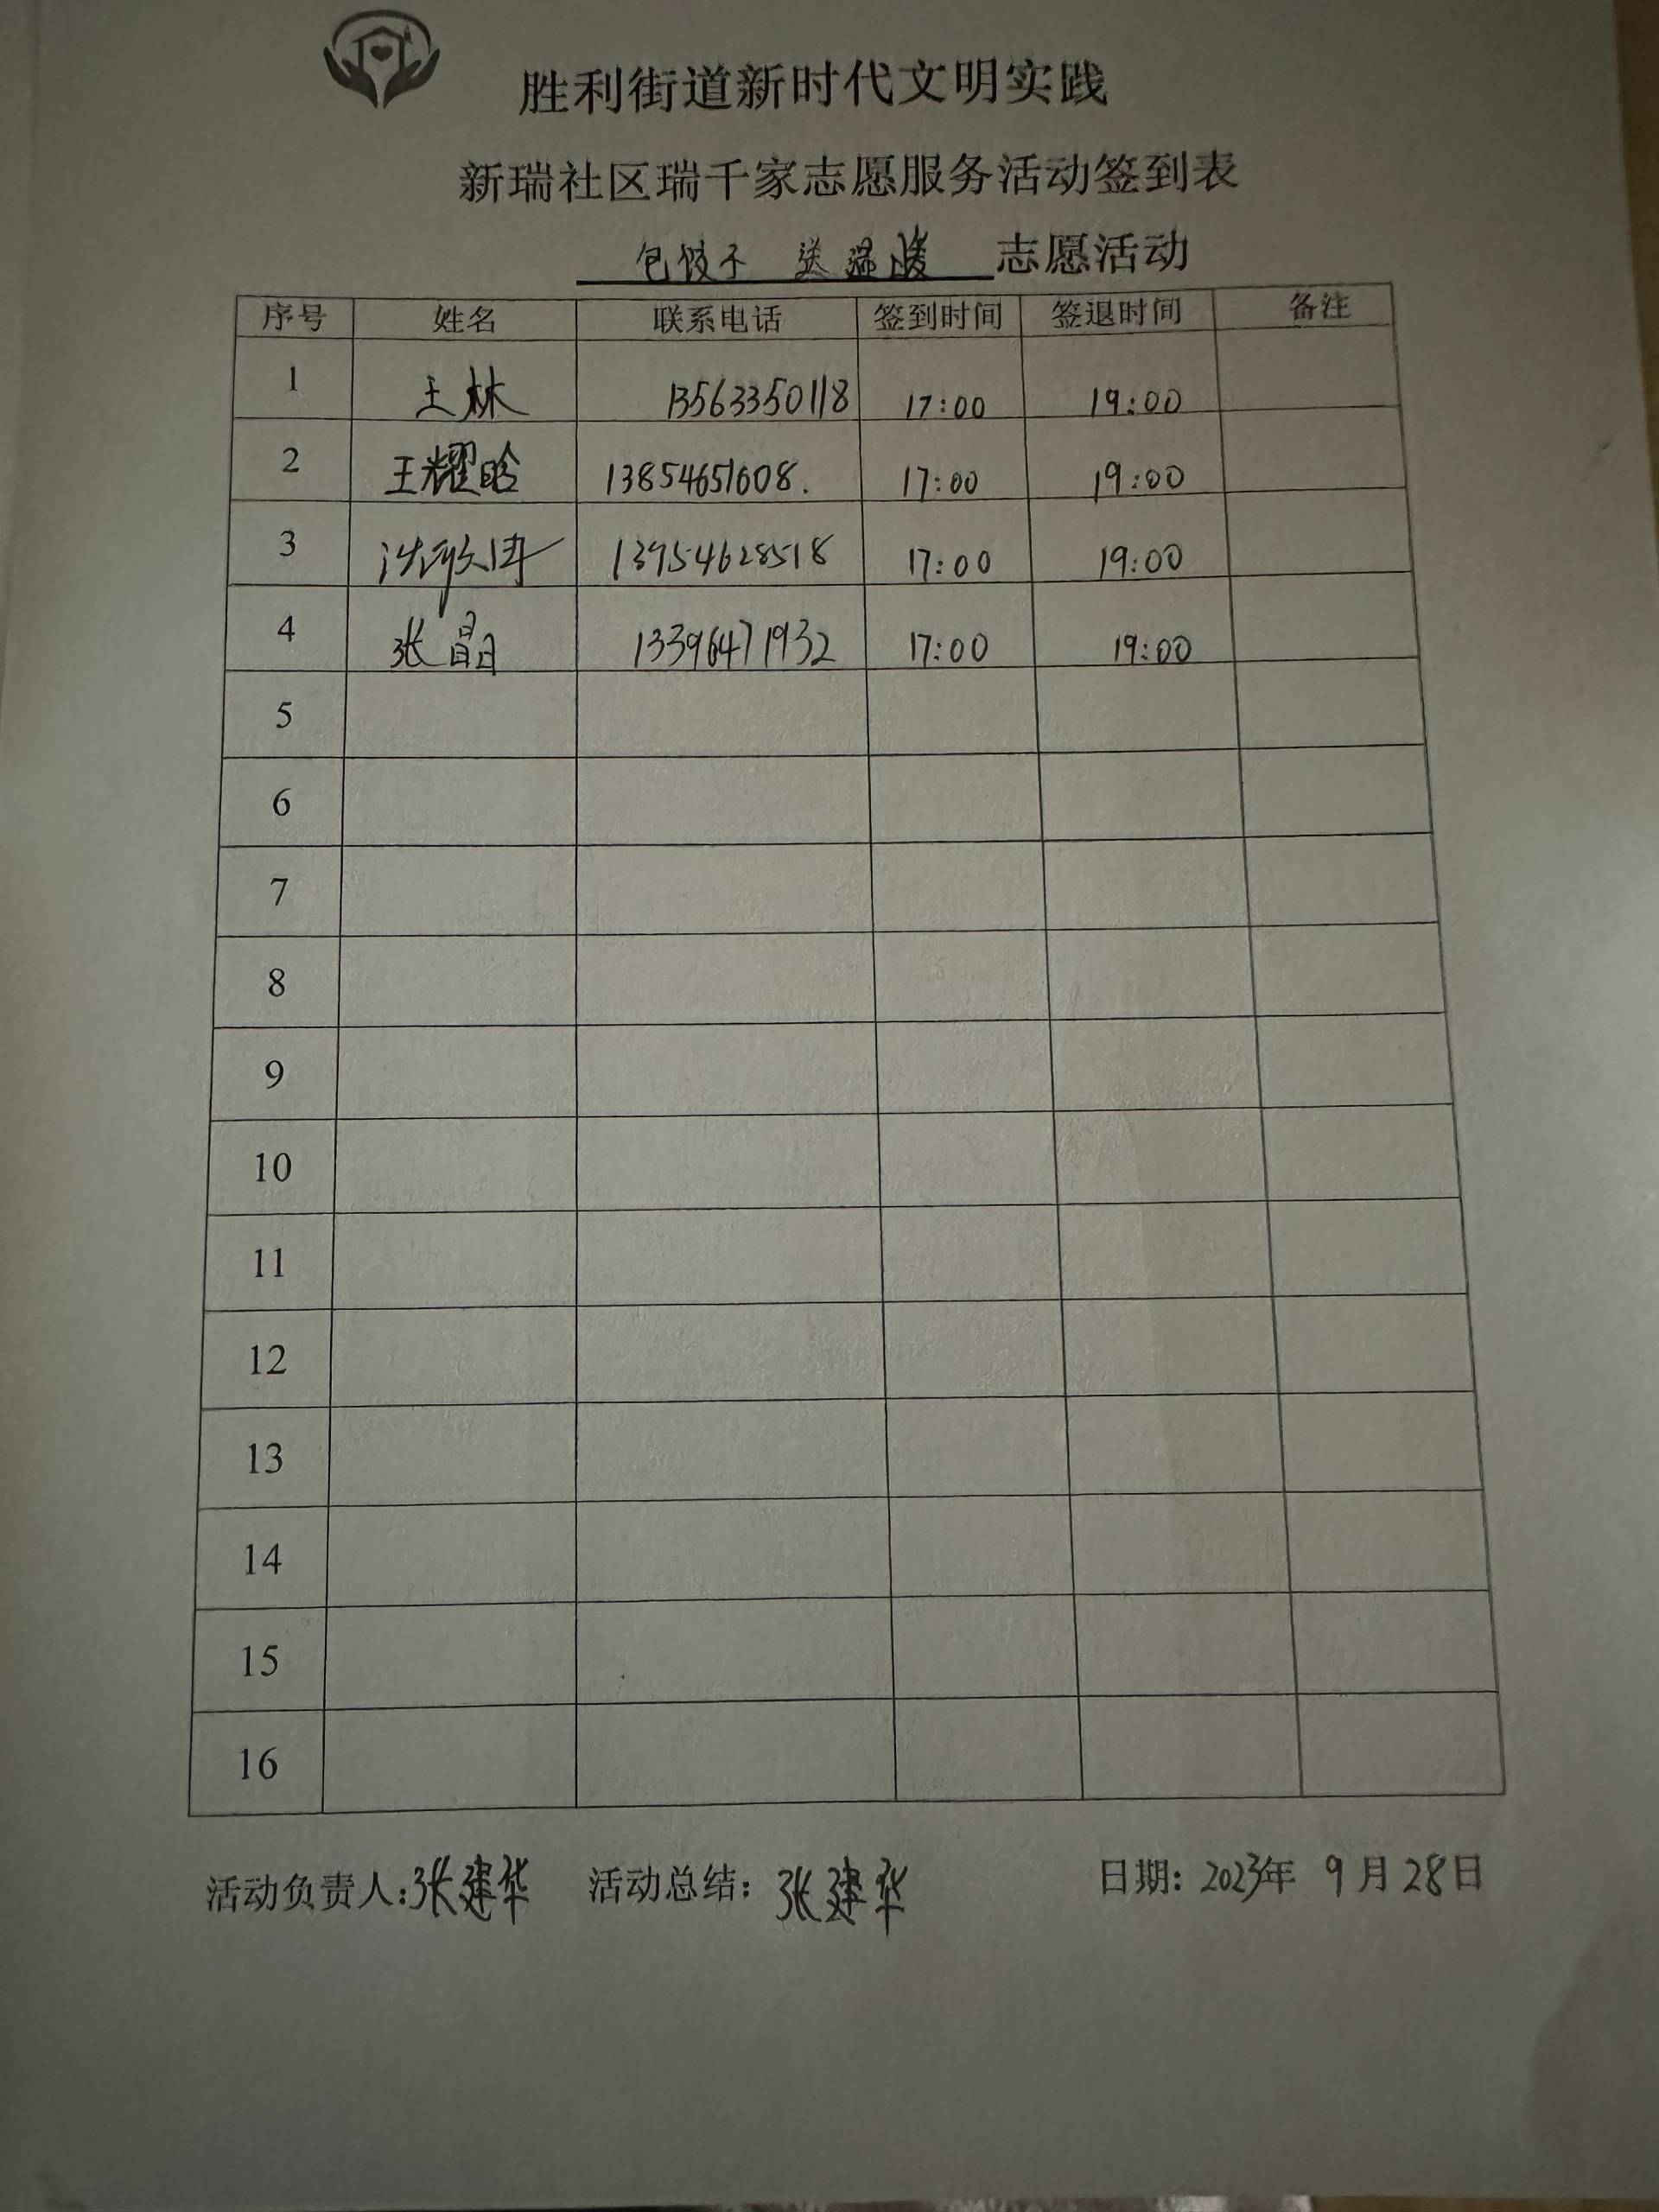 胜利街道新时代文明实践
新瑞社区瑞千家志愿服务活动签到表
包饺子 送温暖 志愿活动
序号 姓名 联系电话 签到时间 签退时间 备注
1 王林 13563350118 17:00 19:00
2 王耀晗 13854651608. 17:00 19:00
3 13954628518 17:00 19:00
4 张晶 13396471932 17:00 19:00
5
6
7
8
9
10
11
12
13
14
15
16
活动负责人:张建华 活动总结: 张建华 日期: 2023年 9月28日